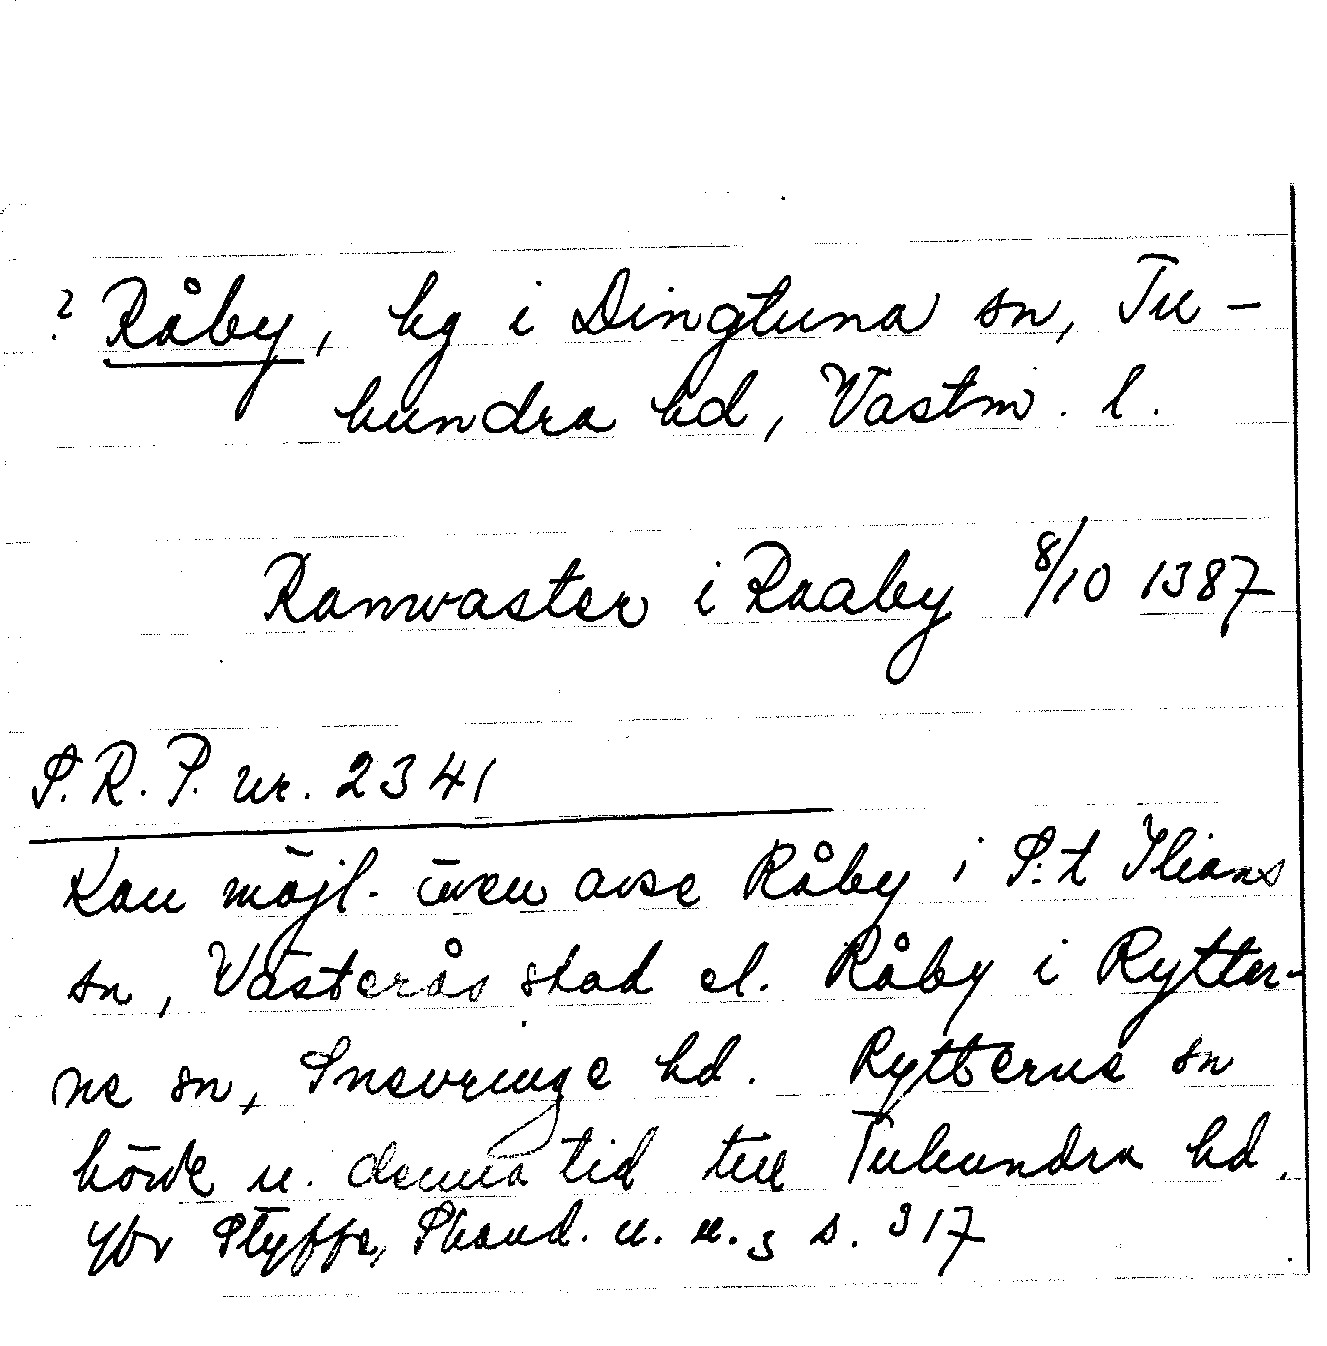 ? Råby, hg i Dingtuna sn, Tu-
hundra hd, Västm. l.
Ramvaster i Raaby 8/10 1387
S.R.P. nr. 2341
Kan möjl. även avse Råby i S:t Ilians
sn, Västerås stad el. Råby i Rytter-
ne sn, Snevringe hd. Rytterne sn
hörde u. denna tid till Tuhundra hd.
Jfr Styffe, Skand. u. u. 3 s. 317